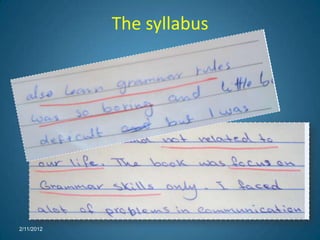 The syllabus
also learn grammar rules
was so boring and little b
defficult and but I was
and not related to
our life. The book was focus on
Grammar skills only. I faced
alot of problems in communication
2/11/2012